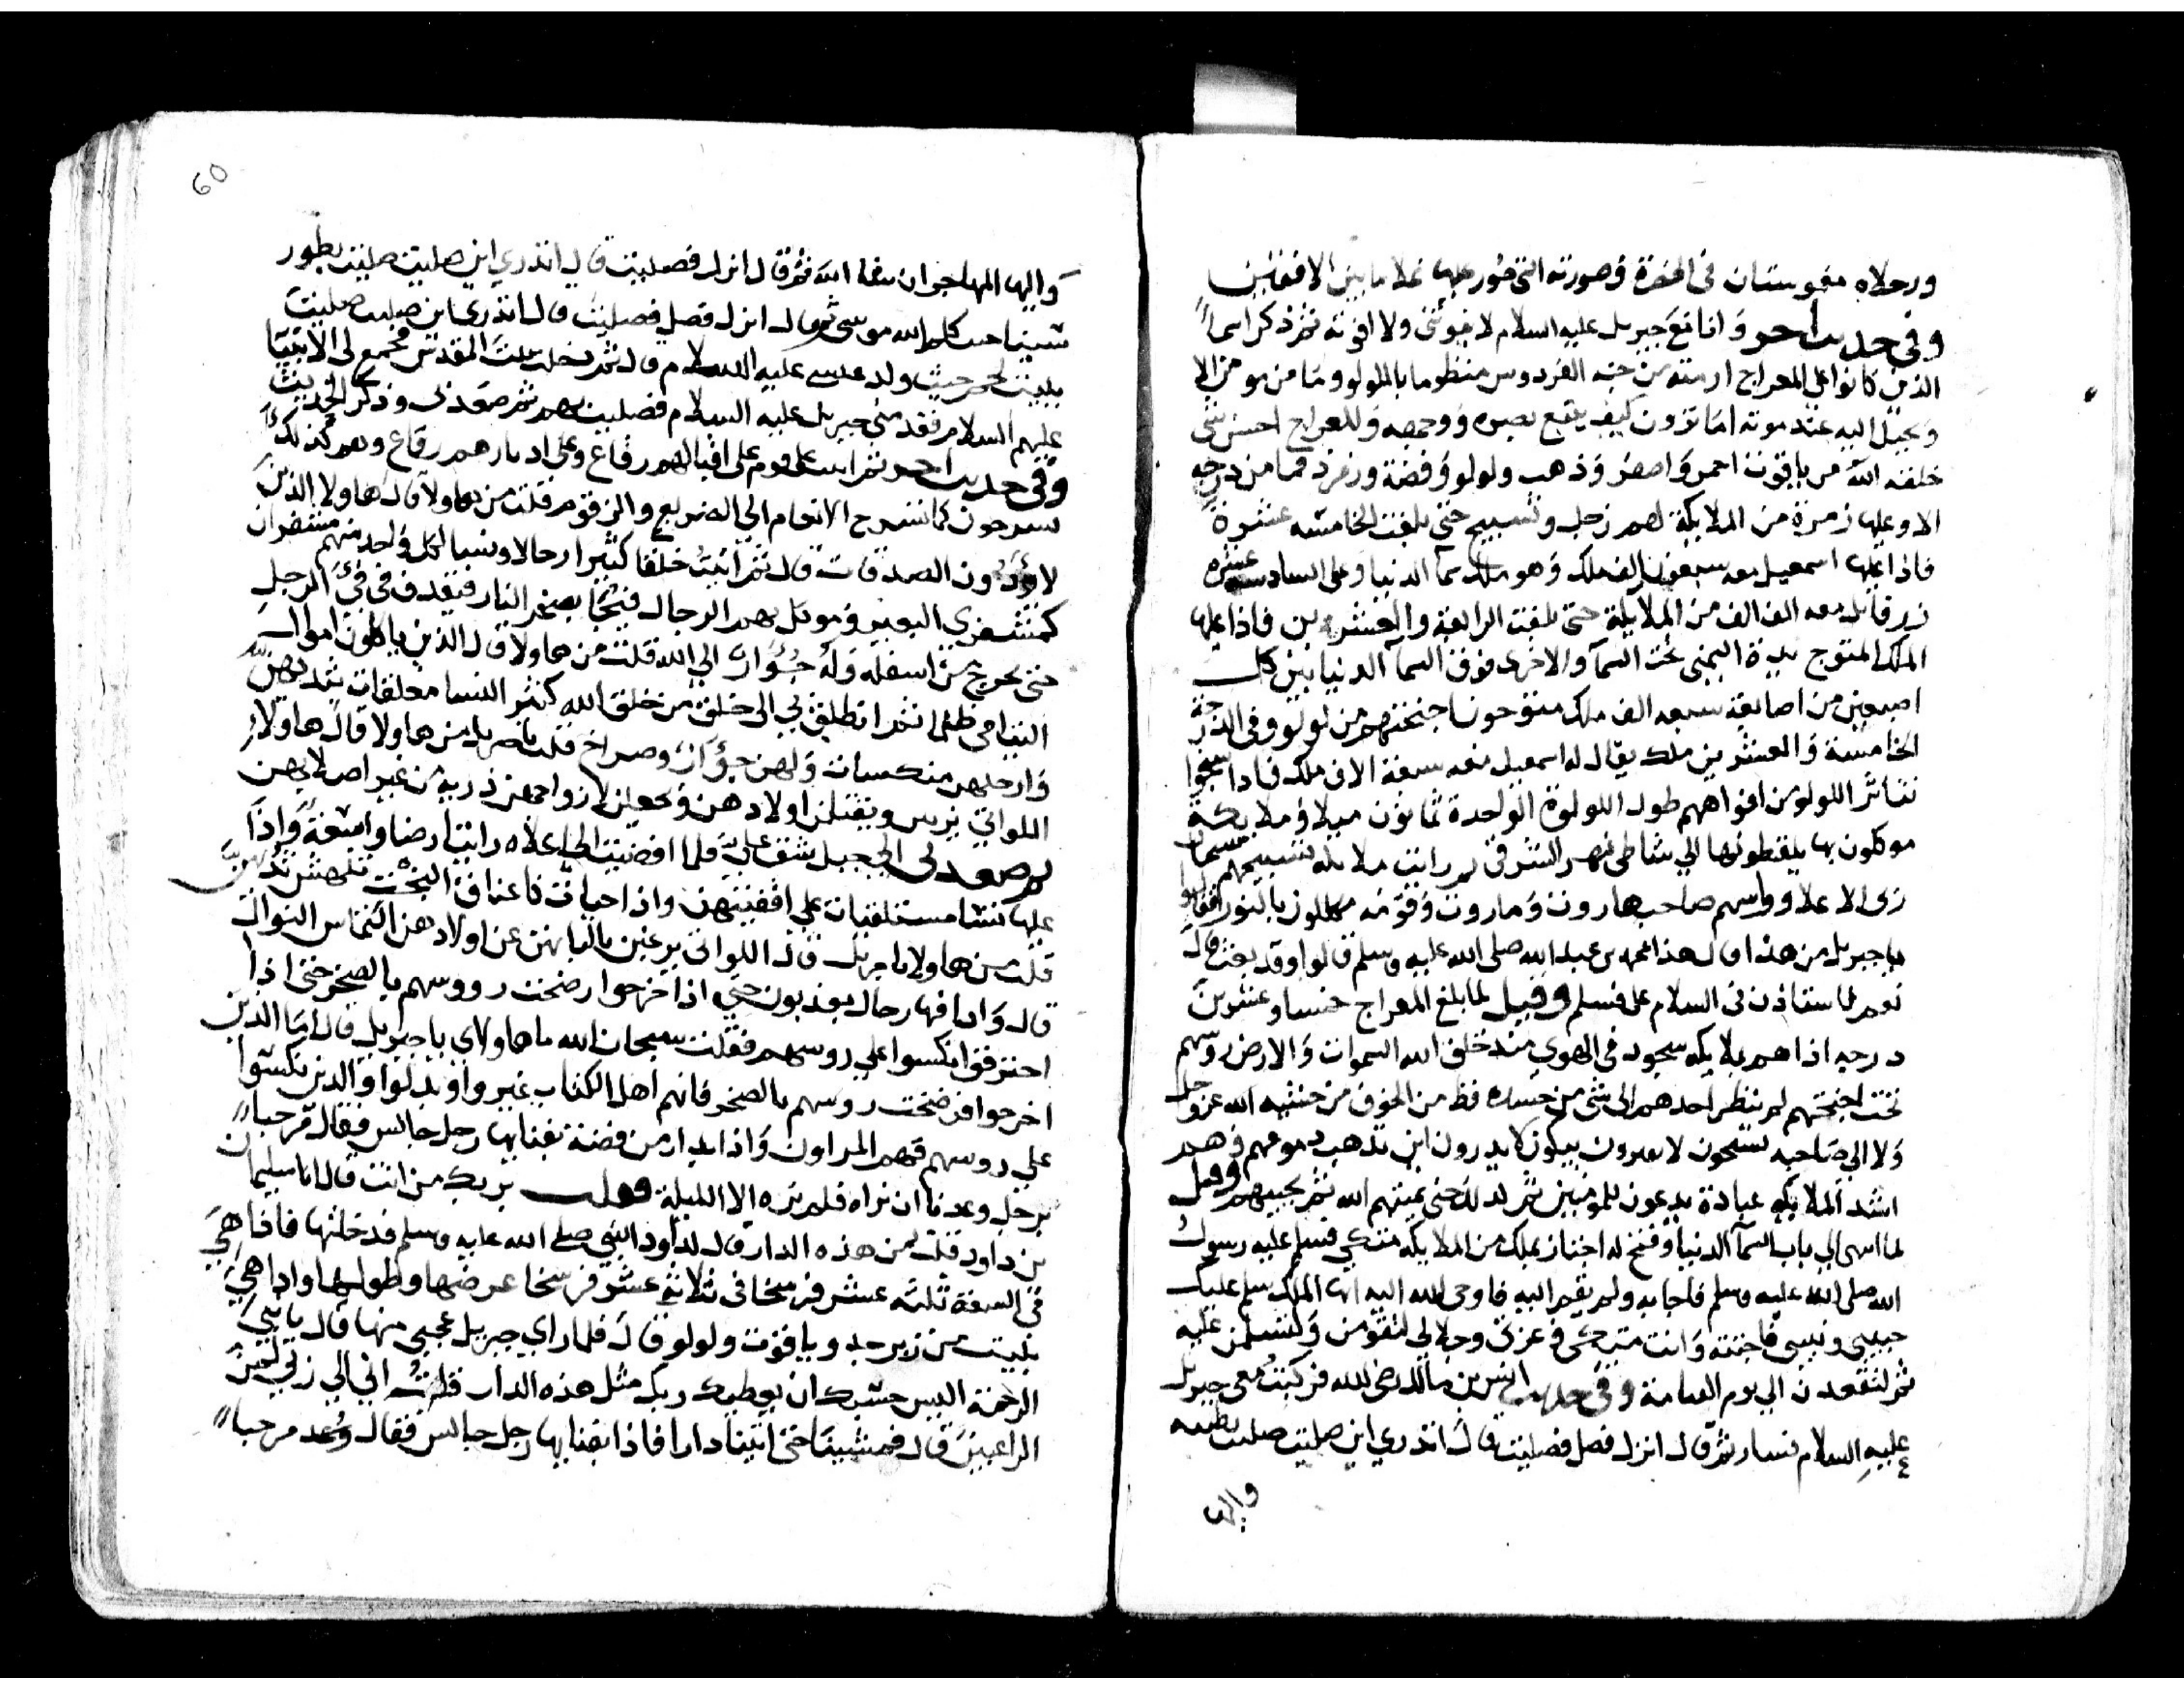 ورجلاه مغموستان فى الحفرة وصورته التى صور عليها تملا ما بين الافقين
وفى حديث اخر وانا مع جبريل عليه السلام لا يفوتنى ولا افوته ثم ذكر اسما
الذين كانوا على المعراج ارمته من جنة الفردوس منظوما باللولو وما من مومن الا
ويخيل اليه عند موته اما ترون كيف يتبع بصره ووجهه وللمعراج احسن شى
خلقه الله من ياقوت احمر واصفر وذهب ولولو وفضة وزمرد فما من درجه
الا وعليها زمرة من الملايكة لهم زجل وتسبيح حتى بلغت الخامسه عشرة
فاذا عليها اسمعيل معه سبعون الف ملك وهو ملك سما الدنيا وعلى السادسه عشره
زرقاىل معه الف الف من الملايكة حتى بلغت الرابعة والعشرين فاذا عليها
الملك المتوج يده اليمنى تحت السما والاخرى فوق السما الدنيا بين كل
اصبعين من اصابعه سبعه الف ملك متوجون اجنحتهم من لولو وفى الدرجة
الخامسة والعشرين ملك يقال له اسمعيل معه سبعة الاف ملك فاذا سبحوا
تناثر اللولو من افواههم طول اللولوة الواحدة ثمانون ميلا وملايكة
موكلون بها يلقطونها الى شاطى نهر الشرق ثم رايت ملايكه تسبيحهم سبحان
ربى الاعلا وواسهم صاحب هاروت وماروت وقومه مكللون بالنور فقالوا
يا جبريل من هذا قال هذا محمد بن عبد الله صلى الله عليه وسلم قالوا وقد بعث قال
نعم فاستاذن فى السلام على فسلم وقيل لما بلغ المعراج خمسا وعشرين
درجه اذا هم بملايكه سجود فى الهوى منذ خلق الله السموات والارض روسهم
تحت اجنحتهم لم ينظر احدهم الى شى من جسده قط من الخوف من خشيه الله عز وجل
ولا الى صاحبه يسبحون لا يفترون يبكون لا يدرون اين تذهب دموعهم وهم
اشد الملايكه عبادة يدعون للمومنين ثم لذلك حتى يميتهم الله ثم يحييهم وقيل
لما انتهى الى باب السما الدنيا وفتح له اجتاز بملك من الملايكه متكى فسلم عليه رسول
الله صلى الله عليه وسلم فاجابه ولم يقم اليه فاوحى الله اليه ايها الملك سلم عليك
حبيبى ونبيى فاجبته وانت متكى وعزتى وجلالى لتقومن ولتسلمن عليه
ثم لتقعدن الى يوم القيامة وفى حديث انس بن مالك رضى الله فركبت معى جبريل
عليه السلام فسار ثم قال انزل فصل فصليت قال اتدرى اين صليت صليت بطيبه
واليها
60
واليها المهاجر ان شا الله ثم قال انزل فصليت قال اتدرى اين صليت صليت بطور
سينا حيث كلم الله موسى ثم قال انزل فصل فصليت قال اتدرى اين صليت صليت
ببيت لحم حيث ولد عيسى عليه السلام قال ثم دخلت بيت المقدس فجمع لى الانبيا
عليهم السلام فقدمنى جبريل عليه السلام فصليت بهم ثم صعد بى وذكر الحديث
وفى حديث اخر ثم اتيت على قوم على اقبالهم رقاع وعلى ادبارهم رقاع وهم كذلك
يسرحون كما تسرح الانعام الى الضريع والزقوم قلت من هاولا قال هاولا الذين
لا يؤدون الصدقات قال ثم اتيت خلقا كثيرا رجالا ونسا لكل واحد منهم مشفران
كمشفرى البعير وموكل بهم الرجال فيجا بصخر النار فتقذف فى فى الرجل
حتى يخرج من اسفله وله جؤار الى الله قلت من هاولا قال الذين ياكلون اموال
اليتامى ظلما ثم انطلق بى الى خلق من خلق الله كثير النسا معلقات بثديهن
وارجلهن منكسات ولهن جؤار وصراخ قلت يا جبريل من هاولا قال هاولا
اللواتى يزنين ويقتلن اولادهن ويجعلن لازواجهن ذرية من غير اصلابهن
ثم صعد بى الى جبل شق على فلما افضيت الى اعلاه رايت ارضا واسعة واذا
عليها نسا مستلقيات على اقفيتهن واذا حيات كاعناق البخت تنهش ثديهن
قلت من هاولا يا جبريل قال اللواتى يرغبن بالبانهن عن اولادهن التماس النوال
قال واذا فيها رجال يعذبون حتى اذا خرجوا رضخت رووسهم بالصخر حتى اذا
احترقوا نكسوا على روسهم فقلت سبحان الله ما هاولاى يا جبريل قال اما الذين
اخرجوا فرضخت روسهم بالصخر فانهم اهل الكتاب غيروا وبدلوا والذين نكسوا
على روسهم فهم المراون واذا بدار من فضة بفنايها رجل جالس فقال مرحبا
برجل وعدنا ان نراه فلم نره الا الليلة فقلت بربك من انت قال انا سليمان
بن داود قلت لمن هذه الدار قال لداود النبى صلى الله عليه وسلم فدخلتها فاذا هى
فى السعة ثلثه عشر فرسخا فى ثلاثة عشر فرسخا عرضها وطولها واذا هى
بنيت من زبرجد وياقوت ولولو قال فلما راى جبريل عجبى منها قال يا نبى
الرحمة اليس حسبك ان يعطيك ربك مثل هذه الدار قلت انى الى ربى لمن
الراغبين قال فمشينا حتى اتينا دارا فاذا بفنايها رجل جالس فقال وعد مرحبا